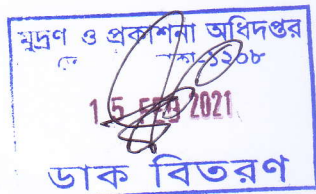 মুদ্রণ ও প্রকাশনা অধিদপ্তর
১২০৮
15 FEB 2021
ডাক বিতরণ